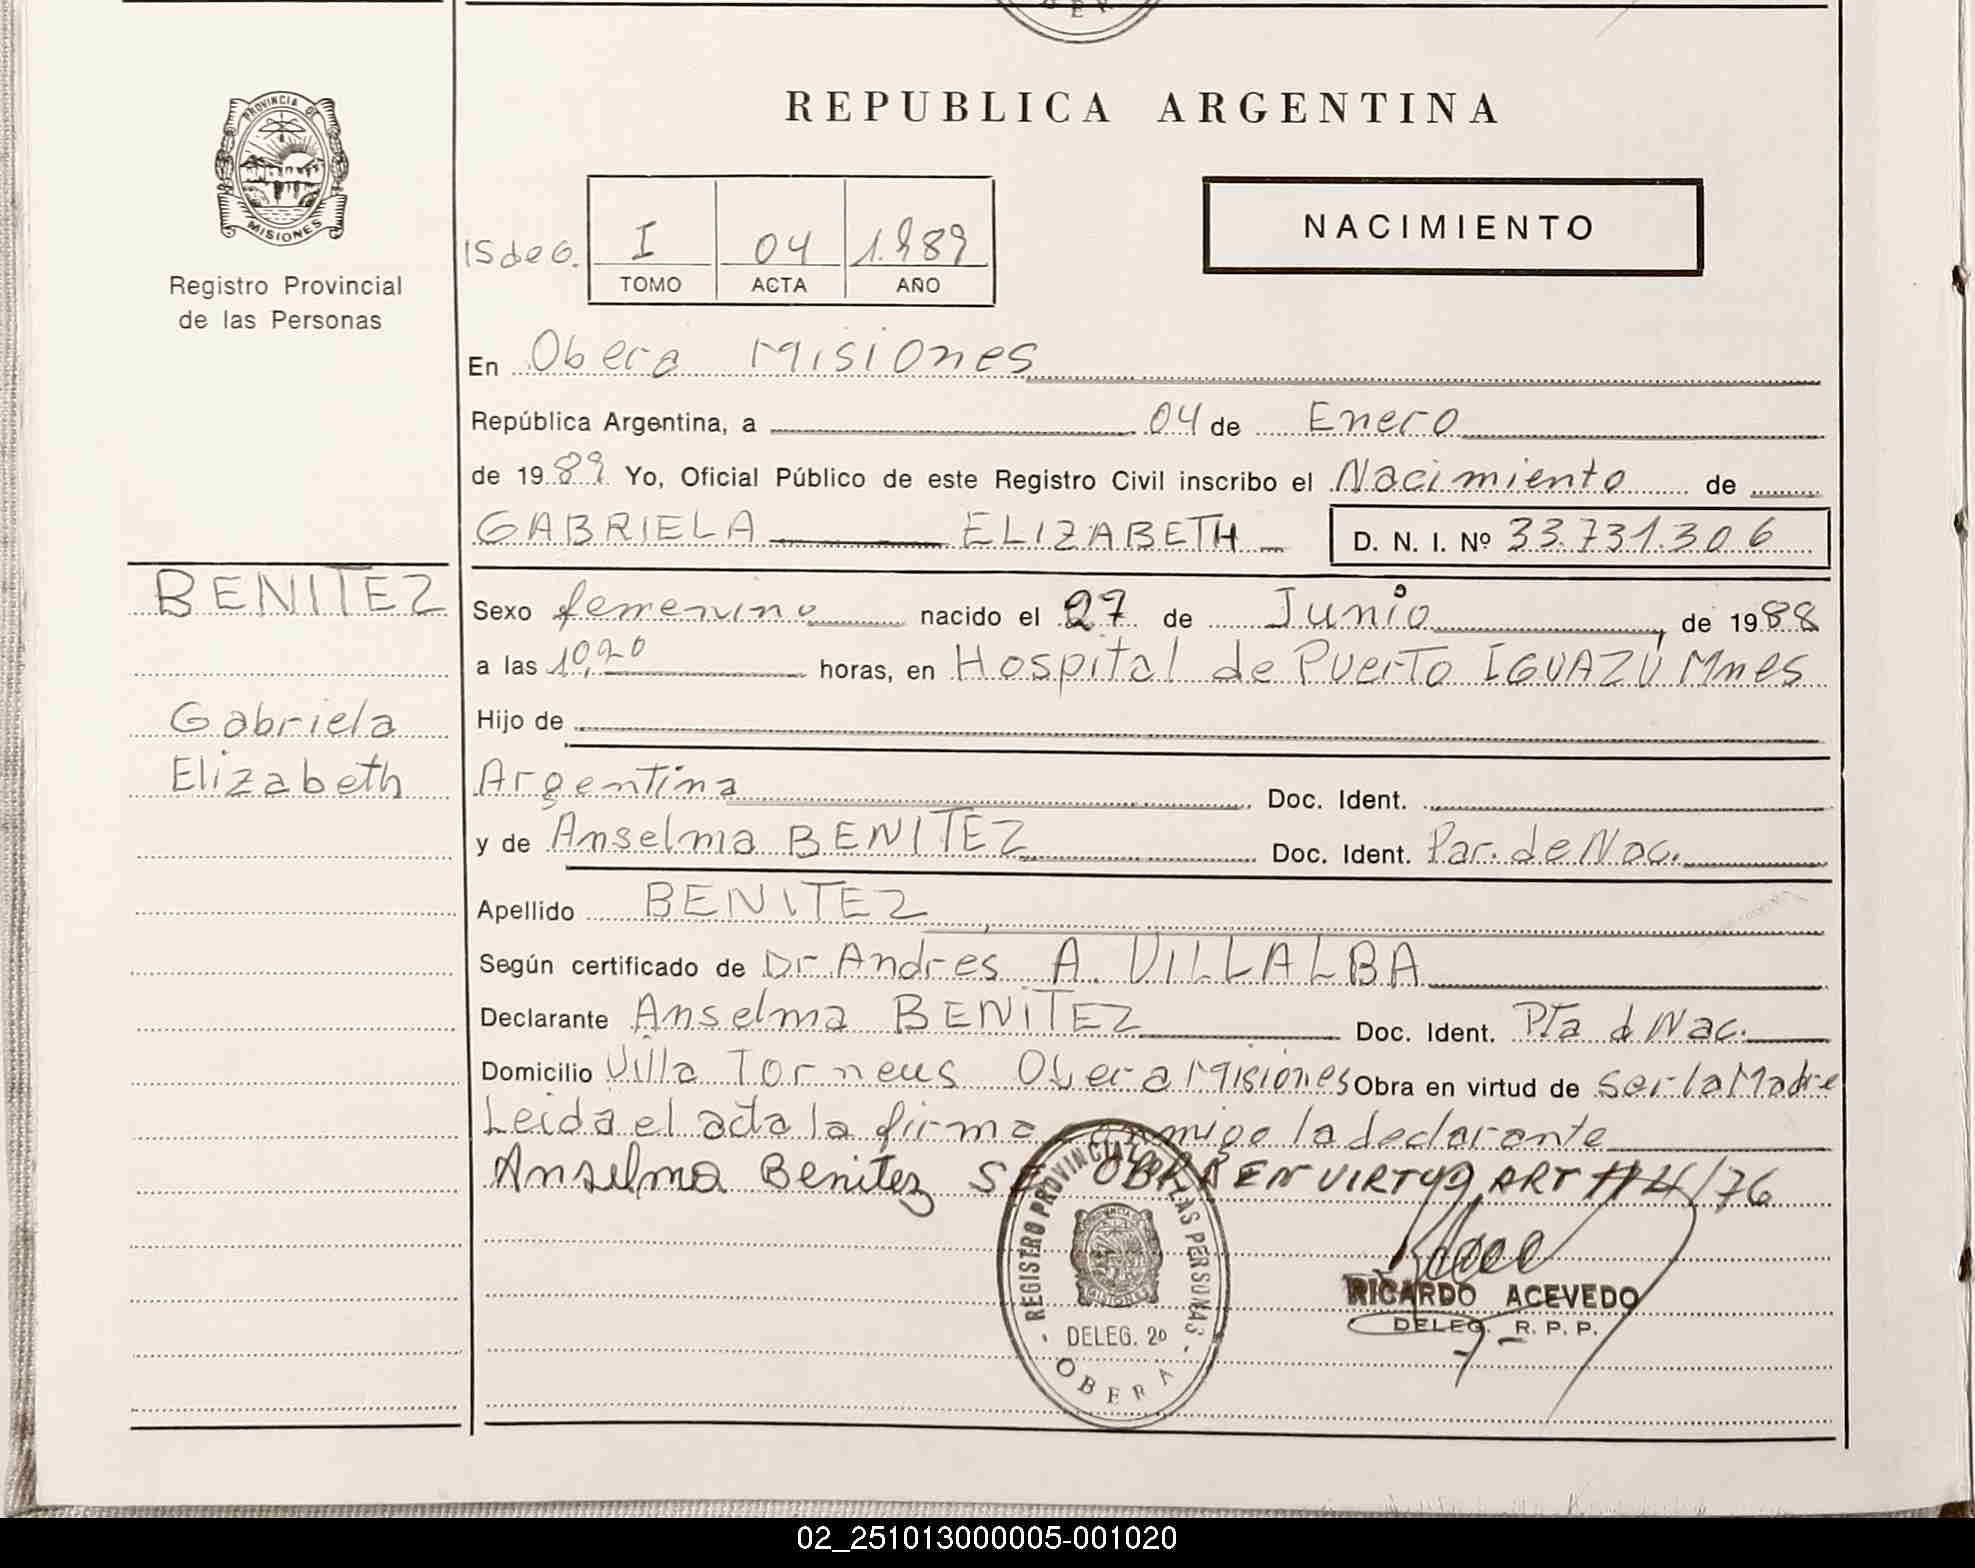 OBERA
REPUBLICA ARGENTINA
PROVINCIA DE
MISIONES
Registro Provincial
de las Personas
NACIMIENTO
I 04 1.989
TOMO ACTA AÑO
En Obera Misiones
República Argentina, a 04 de Enero
de 1989 Yo, Oficial Público de este Registro Civil inscribo el Nacimiento de
GABRIELA ELIZABETH D. N. I. Nº 33.731.306
BENITEZ
Gabriela
Elizabeth
Sexo femenino nacido el 27 de Junio, de 1988
a las 10,20 horas, en Hospital de Puerto IGUAZÚ Mnes
Hijo de
Argentina Doc. Ident.
y de Anselma BENITEZ Doc. Ident. Par. de Nac.
Apellido BENITEZ
Según certificado de Dr. Andrés A. VILLALBA
Declarante Anselma BENITEZ Doc. Ident. Pta d Nac.
Domicilio Villa Torneus Obera Misiones Obra en virtud de ser la Madre
Leida el acta la firma conmigo la declarante
Anselma Benitez SE OBRA EN VIRTUD ART /76
REGISTRO PROVINCIAL DE LAS PERSONAS
DELEG. 20
OBERA
RICARDO ACEVEDO
DELEG. R. P. P.
02_251013000005-001020